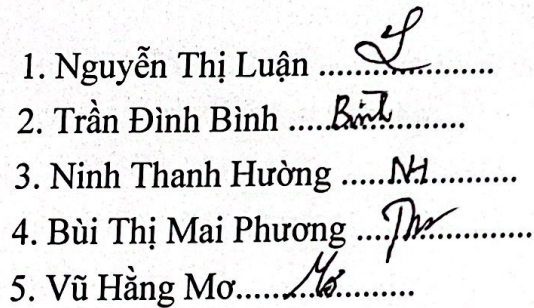 1. Nguyễn Thị Luận ......................
2. Trần Đình Bình .....Bình.............
3. Ninh Thanh Hường .....NH...........
4. Bùi Thị Mai Phương ....Ph..............
5. Vũ Hằng Mơ......Mơ..........